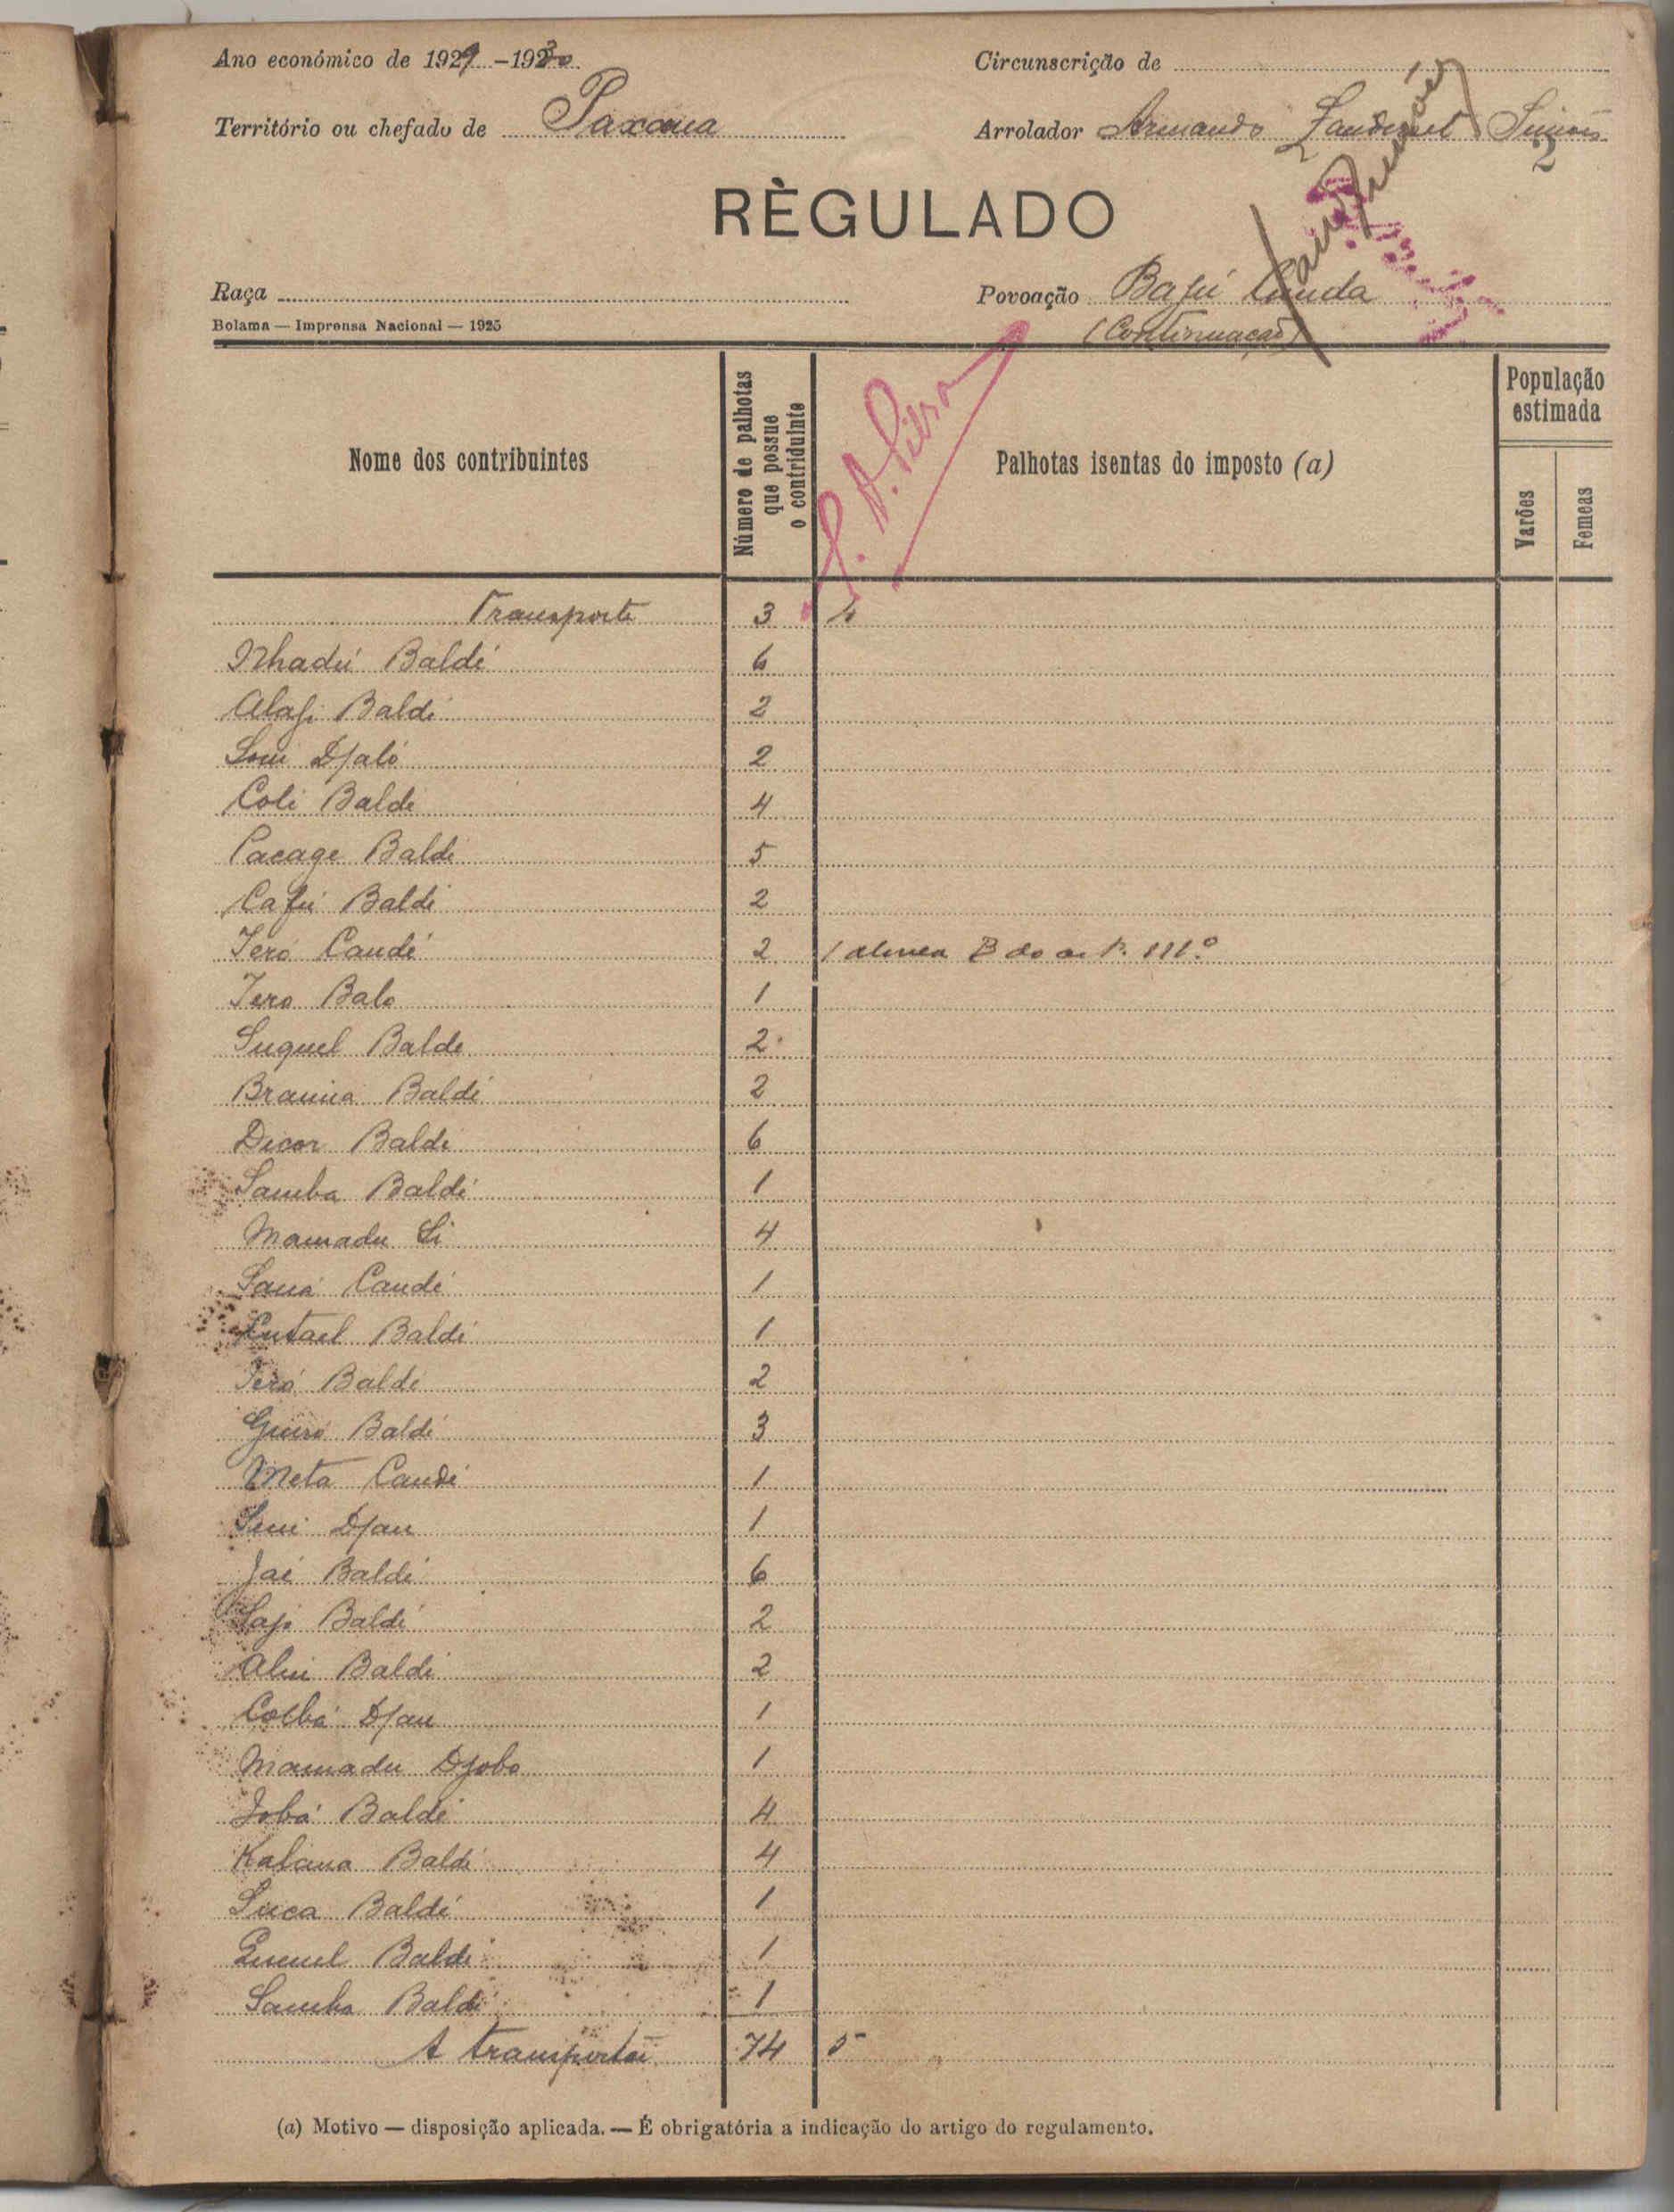 Ano económico de 1929 - 1930
Circunscrição de
Território ou chefado de
Arrolador Armando Simões
2
RÈGULADO
Raça
Povoação Bajú Cunda
Bolama — Imprensa Nacional — 1925
(Continuação)
Nome dos contribuintes
Número de palhotas que possue o contriduinte
Palhotas isentas do imposto (a)
População estimada
Varões
Femeas
Transporte 3 4
Nhadú Baldé 6
Alaji Baldé 2
Djaló 2
Coli Baldé 4
Pacage Baldé 5
Cafú Baldé 2
Iero Candé 2 1 alinea B do art. 111.º
Iero Balo 1
Suquel Balde 2
Brama Baldé 2
Dicor Baldé 6
Samba Baldé 1
Mamadu Si 4
Saná Candé 1
Baldé 1
Ieró Baldé 2
Guiro Baldé 3
Meta Candé 1
Djau 1
Jaé Baldé 6
Sajo Baldé 2
Aliu Baldé 2
Colbá Djau 1
Mamadu Djobo 1
Jobá Baldé 4
Kabana Baldé 4
Suca Baldé 1
Baldé 1
Samba Baldé 1
A transportar 74 5
(a) Motivo — disposição aplicada. — É obrigatória a indicação do artigo do regulamento.